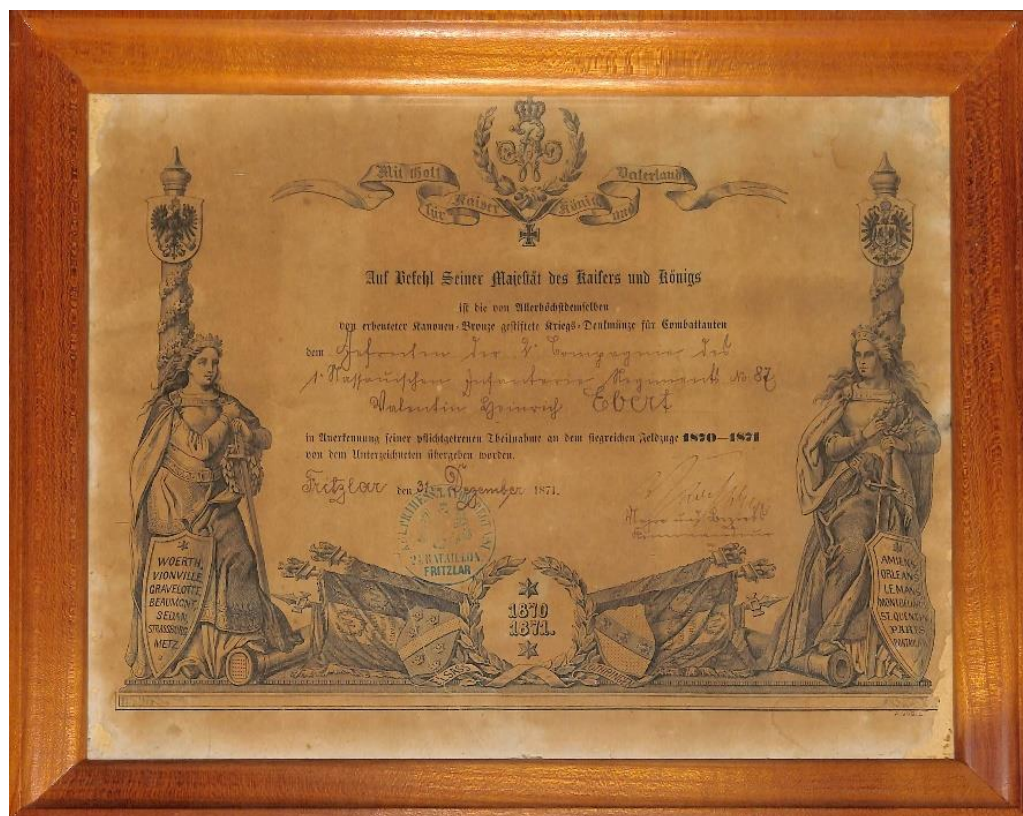 Mit Gott
für Kaiser König und
Vaterland
Auf Befehl Seiner Majestät des Kaisers und Königs
ist die von Allerhöchstdemselben
von erbeuteter Kanonen-Bronze gestiftete Kriegs-Denkmünze für Combattanten
dem Gefreiten der 2' Compagnie des
1' Nassauischen Infanterie Regiments No 87
Valentin Heinrich Ebert
in Anerkennung seiner pflichtgetreuen Theilnahme an dem siegreichen Feldzuge 1870—1871
von dem Unterzeichneten übergeben worden.
Fritzlar den 31 Dezember 1871.
Major und Bezirks
Kommandeur
2. BATAILLON
FRITZLAR
WOERTH,
VIONVILLE
GRAVELOTTE
BEAUMONT
SEDAN
STRASSBURG
METZ
1870
1871.
AMIENS
ORLEANS
LE MANS
MONTBELIARD
ST. QUENTIN
PARIS